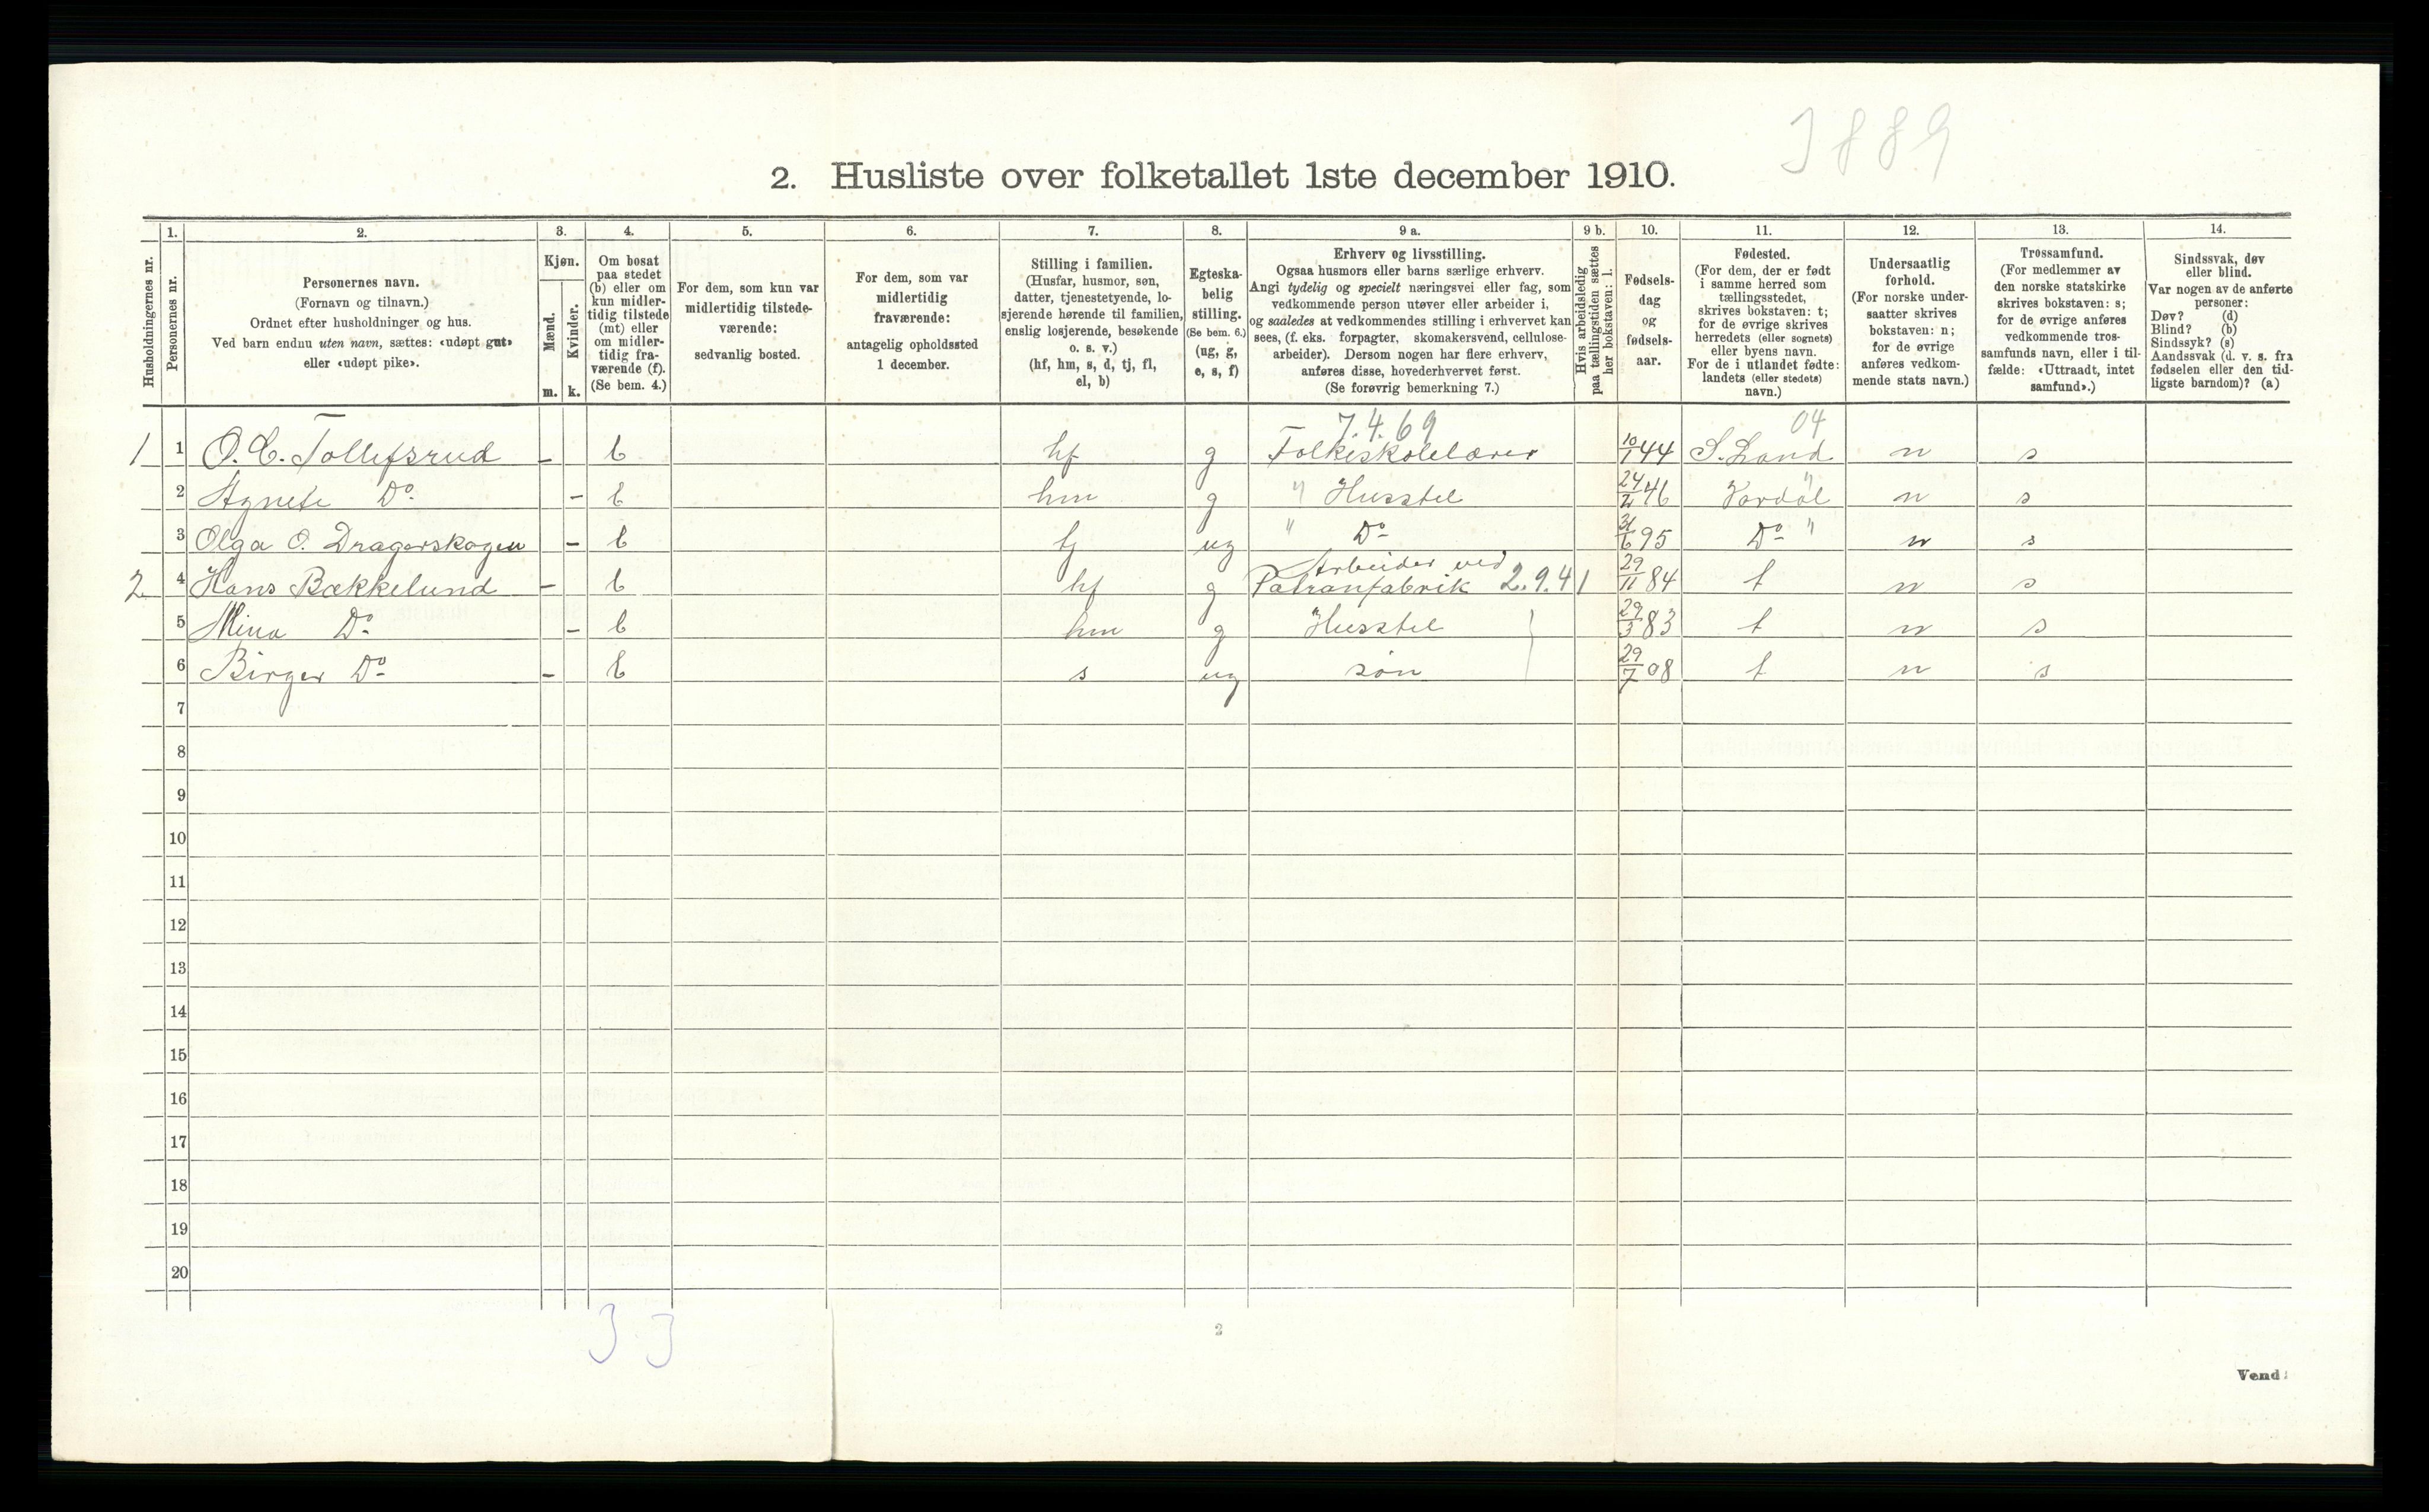 3889
2. Husliste over folketallet 1ste december 1910.
Husholdningernes nr.
1.
Personernes nr.
2.
Personernes navn.
(Fornavn og tilnavn.)
Ordnet efter husholdninger og hus.
Ved barn endnu uten navn, sættes: «udøpt gut»
eller «udøpt pike».
3.
Kjøn.
Mænd.
Kvinder.
m. k.
4.
Om bosat
paa stedet
(b) eller om
kun midler-
tidig tilstede
(mt) eller
om midler-
tidig fra-
værende (f).
(Se bem. 4.)
5.
For dem, som kun var
midlertidig tilstede-
værende:
sedvanlig bosted.
6.
For dem, som var
midlertidig
fraværende:
antagelig opholdssted
1 december.
7.
Stilling i familien.
(Husfar, husmor, søn,
datter, tjenestetyende, lo-
sjerende hørende til familien,
enslig losjerende, besøkende
o. s. v.)
(hf, hm, s, d, tj, fl,
el, b)
8.
Egteska-
belig
stilling.
(Se bem. 6.)
(ug, g,
e, s, f)
9 a.
Erhverv og livsstilling.
Ogsaa husmors eller barns særlige erhverv.
Angi tydelig og specielt næringsvei eller fag, som
vedkommende person utøver eller arbeider i,
og saaledes at vedkommendes stilling i erhvervet kan
sees, (f. eks. forpagter, skomakersvend, cellulose-
arbeider). Dersom nogen har flere erhverv,
anføres disse, hovederhvervet først.
(Se forøvrig bemerkning 7.)
9 b.
Hvis arbeidsledig
paa tællingstiden sættes
her bokstaven: l.
10.
Fødsels-
dag
og
fødsels-
aar.
11.
Fødested.
(For dem, der er født
i samme herred som
tællingsstedet,
skrives bokstaven: t;
for de øvrige skrives
herredets (eller sognets)
eller byens navn.
For de i utlandet fødte:
landets (eller stedets)
navn.)
12.
Undersaatlig
forhold.
(For norske under-
saatter skrives
bokstaven: n;
for de øvrige
anføres vedkom-
mende stats navn.)
13.
Trossamfund.
(For medlemmer av
den norske statskirke
skrives bokstaven: s;
for de øvrige anføres
vedkommende tros-
samfunds navn, eller i til-
fælde: «Uttraadt, intet
samfund».)
14.
Sindssvak, døv
eller blind.
Var nogen av de anførte
personer:
Døv? (d)
Blind? (b)
Sindssyk? (s)
Aandssvak (d. v. s. fra
fødselen eller den tid-
ligste barndom)? (a)
7.4.69 04
1 1 O. C. Tollefsrud - b hf g Folkeskolelærer 10/1 44 S. Land n s
2 Agnete Do - b hm g " Husstel 24/2 46 Vardal " n s
3 Olga O. Dragerskogen - b tj ug " Do 31/6 95 Do " n s
Arbeider ved
2 4 Hans Bækkelund - b hf g Patronfabrik 2.9.41 29/11 84 t n s
5 Mina Do - b hm g Husstel 29/3 83 t n s
6 Birger Do - b s ug søn 29/7 08 t n s
7
8
9
10
11
12
13
14
15
16
17
18
19
20
3 3
2
Vend!